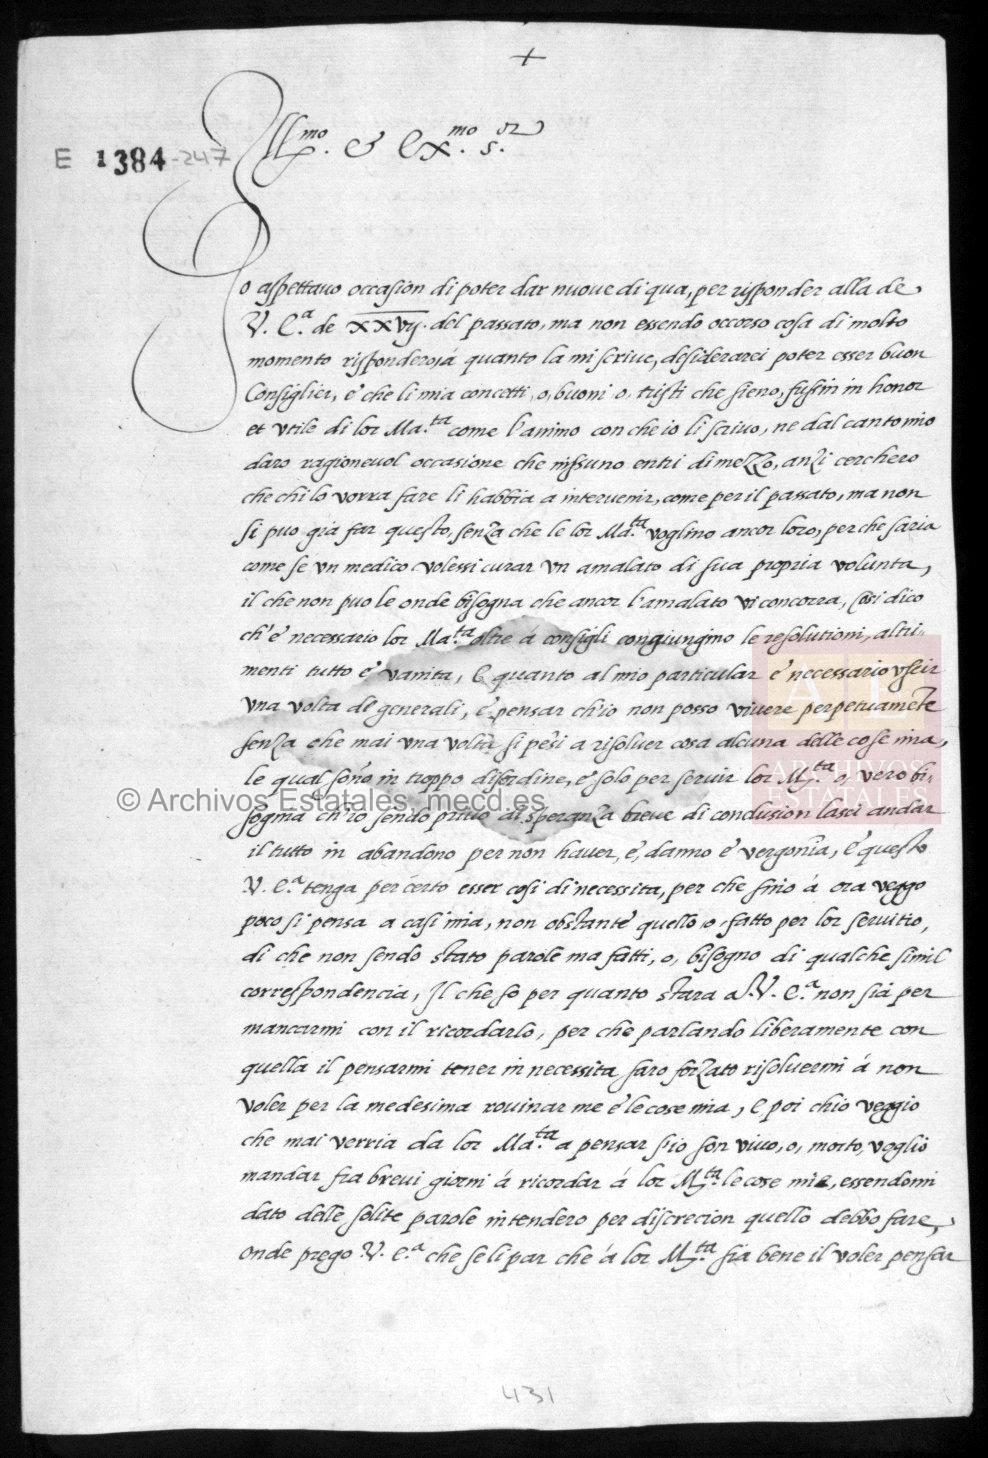 +
Ill.mo & Ex.mo s.or
E 1384-247
Io aspettauo occasion di poter dar nuoue di qua, per risponder alla de
V. E.a de xxvij. del passato, ma non essendo occorso cosa di molto
momento risponderoˏa quanto la mi scriue, desiderarei poter esser buon
Consiglier, e' che li mia concetti, o, buoni o tristi che sieno, fussin in honor
et vtile di lor Ma.ta come l'animo con che io li scriuo, ne dal canto mio
daro ragioneuol occasione che nissuno entri di mezzo, anzi cerchero
che chi lo vorra fare li habbia a interuenir, come per il passato, ma non
si puo gia far questo, senza che le lor Ma.ta voglino ancor loro, perche saria
come se vn medico volessi curar vn amalato di sua propria volunta,
il che non puo le onde bisogna che ancor l'amalato vi concorra, Cosi dico
ch'e' necessario lor Ma.ta oltre á consigli congiunghino le resolutioni, altri-
menti tutto e' vanita, E quanto al mio particular e' necessario vscir
vna volta de generali, e' pensar ch'io non posso viuere perpetuamẽte
senza che mai vna volta si pẽsi a risoluer cosa alcuna delle cose mia,
le qual sono in troppo disordine, e' solo per seruir lor M.ta o, vero bi-
sogna ch'io sendo priuo di speranza breue di conclusion lasci andar
il tutto in abandono per non hauer, e', danno e' vergonia, E' questo
V. E.a tenga per certo esser cosi di necessita, per che fino á ora veggo
poco si pensa a casi mia, non obstante quello, o, fatto per lor seruitio,
di che non sendo stato parole ma fatti, o, bisogno di qualche simil
correspondencia, Il che so per quanto stara a .V. E.a non sia per
mancarmi con il ricordarlo, per che parlando liberamente con
quella il pensarmi tener in necessita saro forzato risoluermi á non
voler per la medesima rouinar me e' le cose mia, E poi chio veggio
che mai verria da lor Ma.ta a pensar s'io son viuo, o, morto, voglio
mandar fra breui giorni á ricordar á lor M.ta le cose mie, essendomi
dato delle solite parole intendero per discrecion quello debbo fare,
Onde prego V. E.a che se li par che á lor M.ta sia bene il voler pensar
431
© Archivos Estatales, mecd.es
AE
ARCHIVOS
ESTATALES